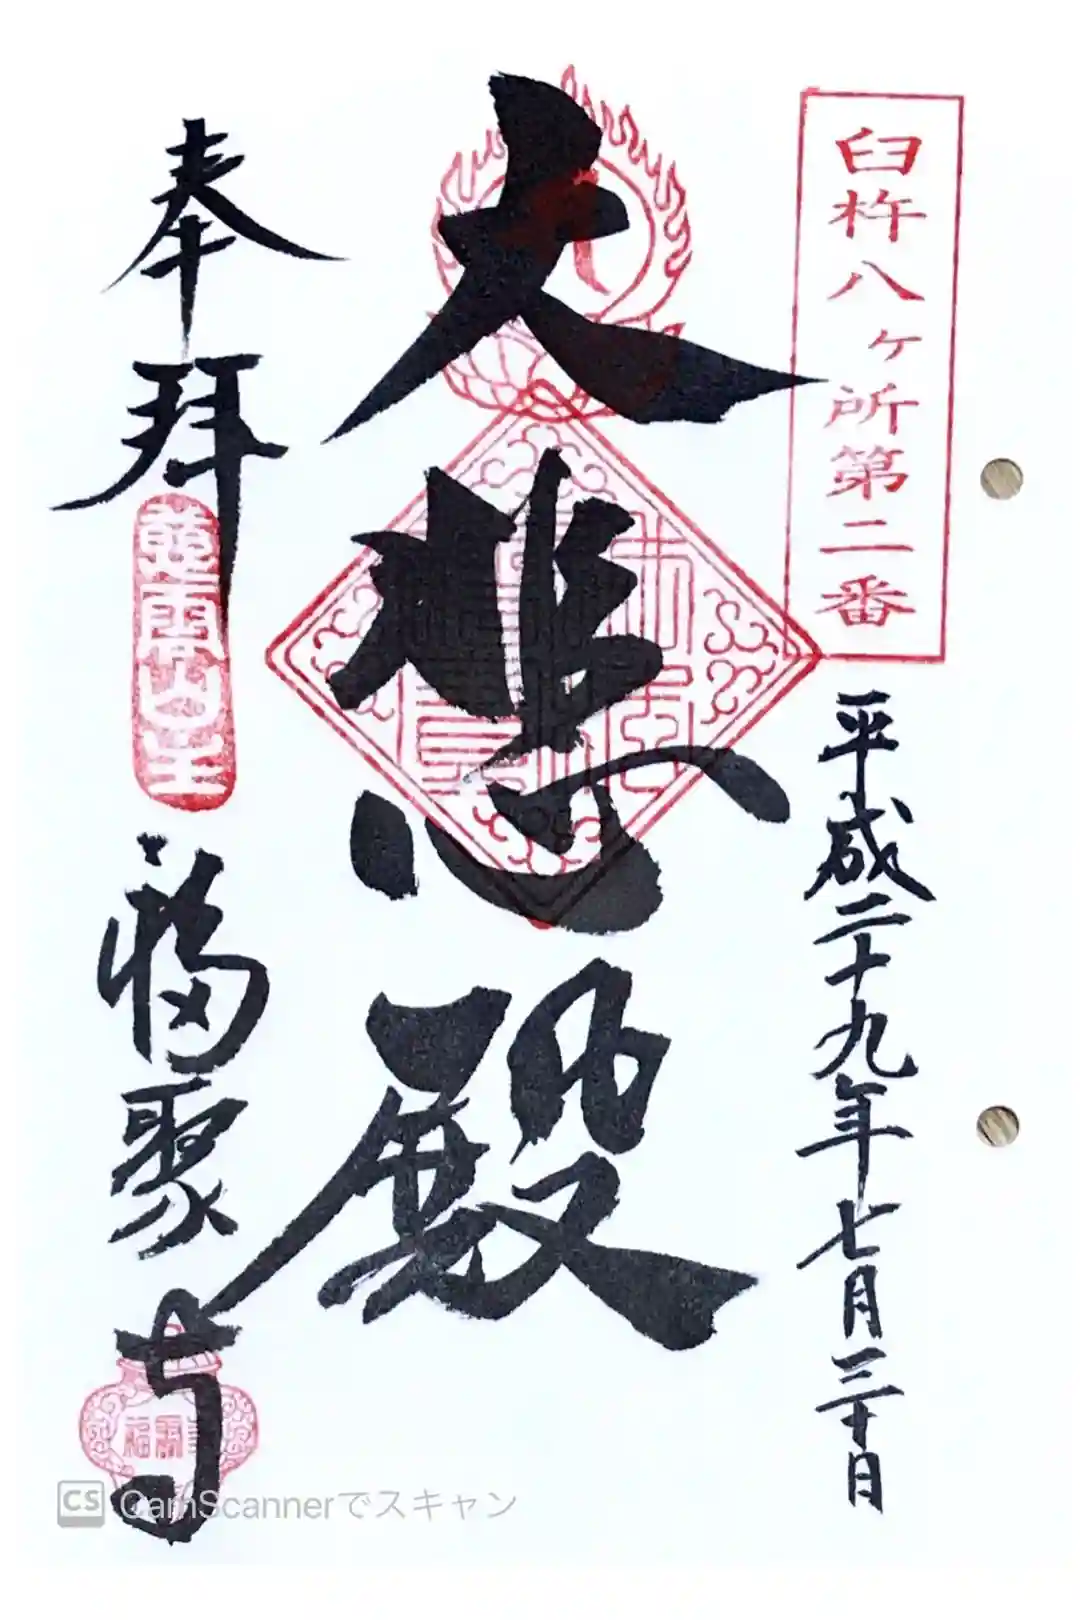 臼杵八ヶ所第二番
平成二十九年七月三十日
大悲殿
奉拝
慈雲山主
福聚寺
CS CamScannerでスキャン